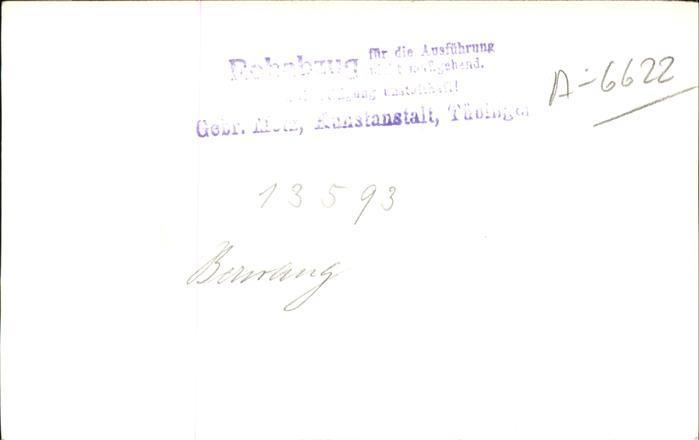 Rohabzug für die Ausführung
nicht maßgebend.
unstatthaft!
Gebr. Metz, Kunstanstalt, Tübingen
A-6622
13593
Berwang